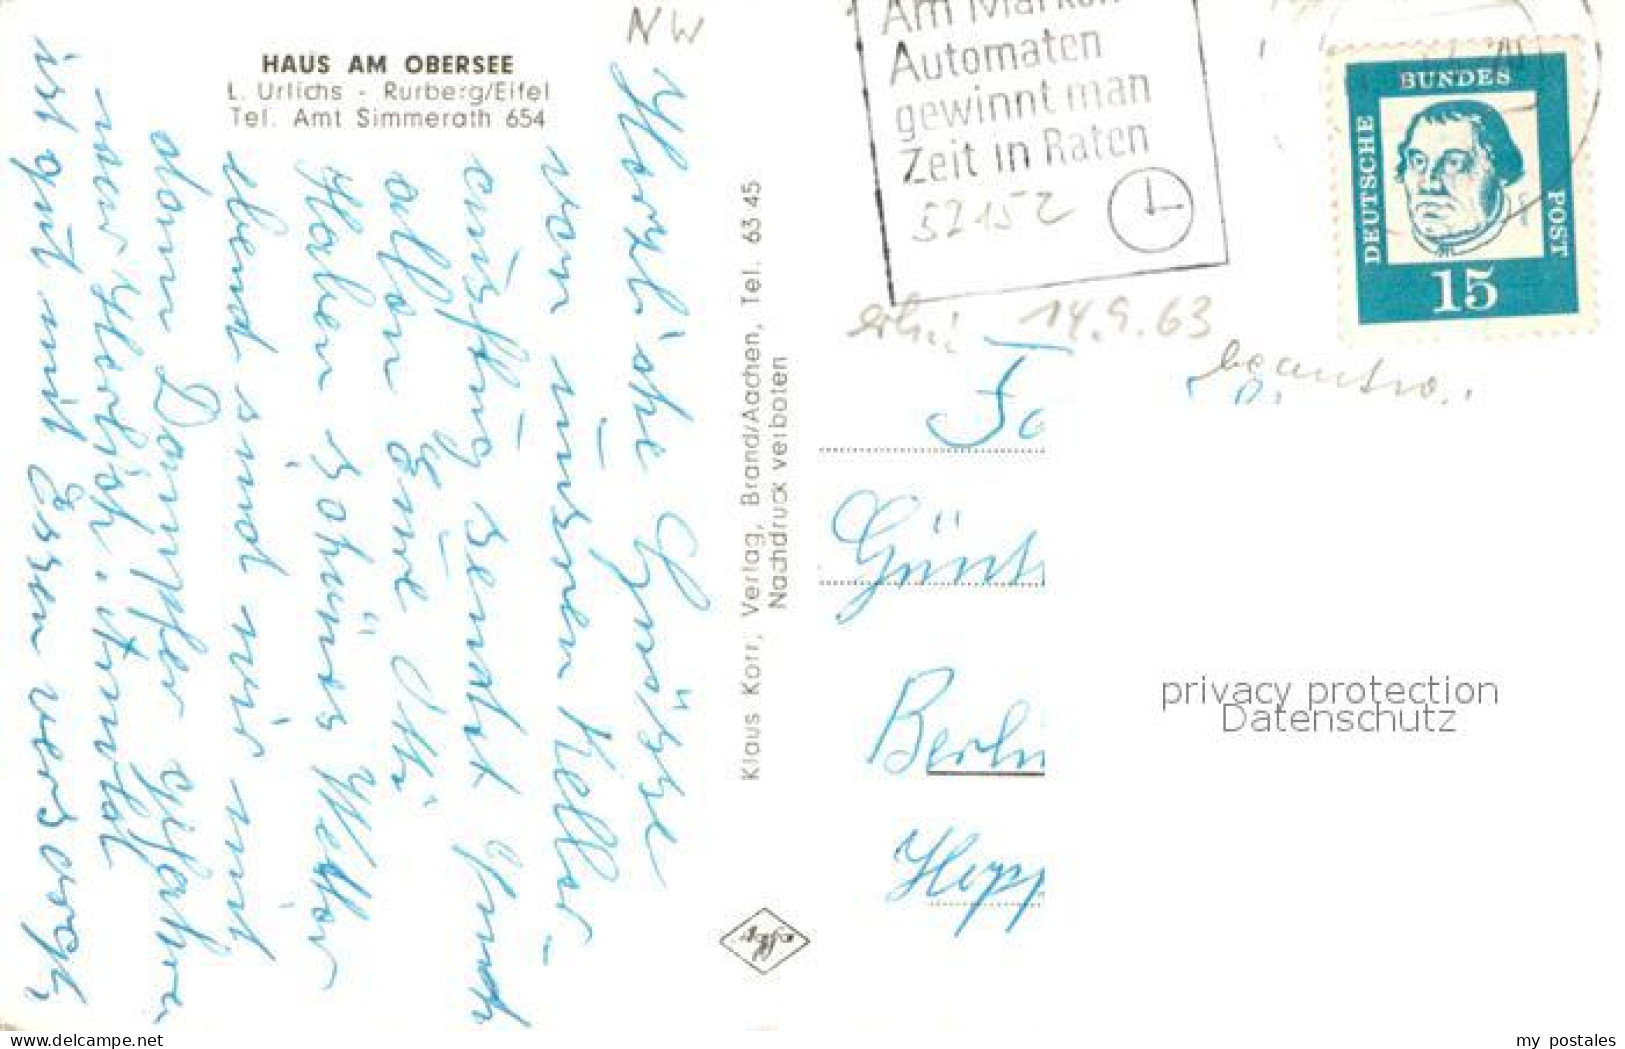 HAUS AM OBERSEE
L. Urlichs - Rurberg/Eifel
Tel. Amt Simmerath 654
NW
Herzliche Grüsse
von unsren Keller-
ausflug sendet Euch
allen Eure Otti
Haben schönes Wetter
ebend sind wir mit
dem Dampfer gefahren
war Herrlich.
ist gut mit Essen versorgt,
Klaus Korr, Verlag, Brand/Aachen, Tel. 63 45
Nachdruck verboten
Automaten
gewinnt man
Zeit in Raten
52152
14.9.63
DEUTSCHE
BUNDES
POST
15
Günt
Berlin
Hepp
privacy protection
Datenschutz
www.delcampe.net
my_postales